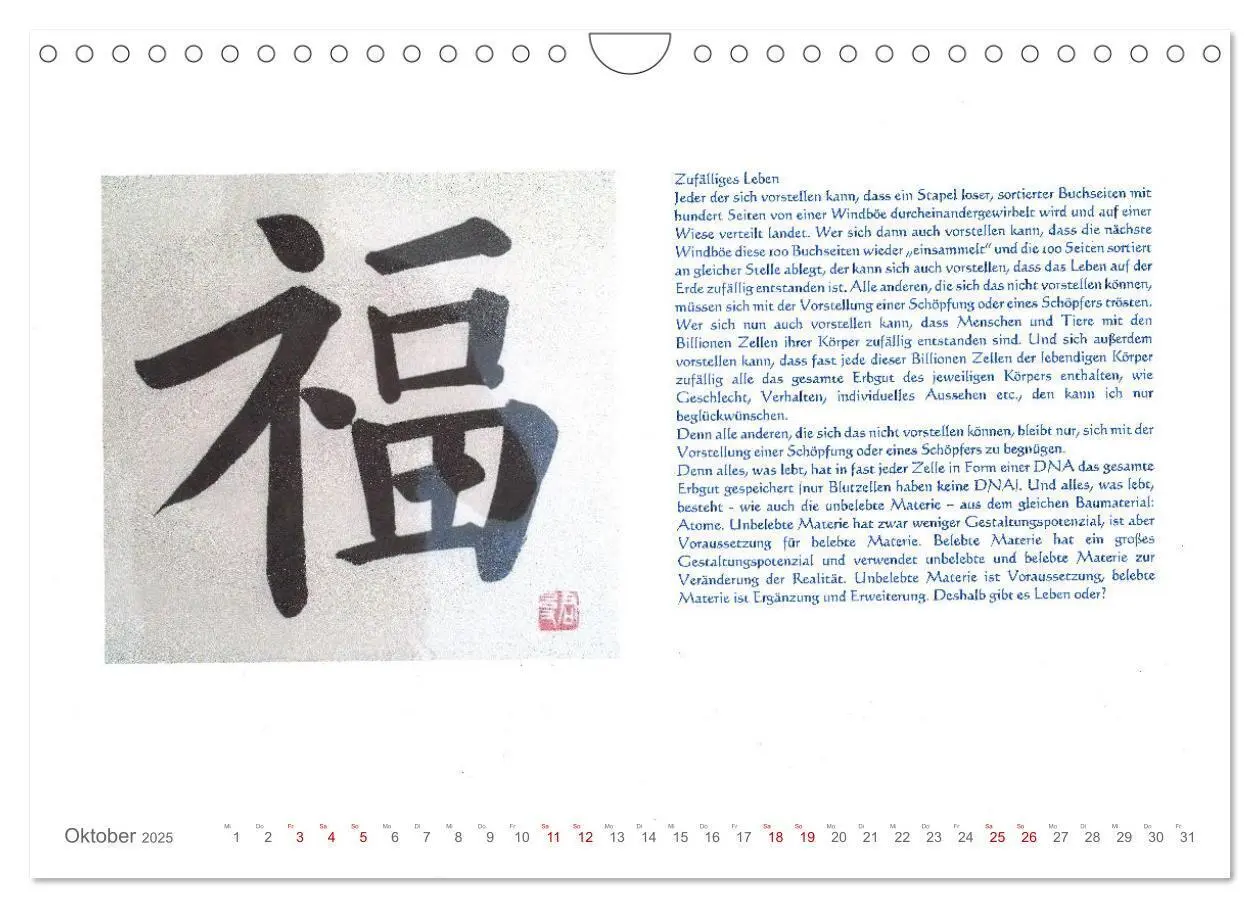 福
Zufälliges Leben
Jeder der sich vorstellen kann, dass ein Stapel loser, sortierter Buchseiten mit
hundert Seiten von einer Windböe durcheinandergewirbelt wird und auf einer
Wiese verteilt landet. Wer sich dann auch vorstellen kann, dass die nächste
Windböe diese 100 Buchseiten wieder „einsammelt“ und die 100 Seiten sortiert
an gleicher Stelle ablegt, der kann sich auch vorstellen, dass das Leben auf der
Erde zufällig entstanden ist. Alle anderen, die sich das nicht vorstellen können,
müssen sich mit der Vorstellung einer Schöpfung oder eines Schöpfers trösten.
Wer sich nun auch vorstellen kann, dass Menschen und Tiere mit den
Billionen Zellen ihrer Körper zufällig entstanden sind. Und sich außerdem
vorstellen kann, dass fast jede dieser Billionen Zellen der lebendigen Körper
zufällig alle das gesamte Erbgut des jeweiligen Körpers enthalten, wie
Geschlecht, Verhalten, individuelles Aussehen etc., den kann ich nur
beglückwünschen.
Denn alle anderen, die sich das nicht vorstellen können, bleibt nur, sich mit der
Vorstellung einer Schöpfung oder eines Schöpfers zu begnügen.
Denn alles, was lebt, hat in fast jeder Zelle in Form einer DNA das gesamte
Erbgut gespeichert (nur Blutzellen haben keine DNA). Und alles, was lebt,
besteht - wie auch die unbelebte Materie – aus dem gleichen Baumaterial:
Atome. Unbelebte Materie hat zwar weniger Gestaltungspotenzial, ist aber
Voraussetzung für belebte Materie. Belebte Materie hat ein großes
Gestaltungspotenzial und verwendet unbelebte und belebte Materie zur
Veränderung der Realität. Unbelebte Materie ist Voraussetzung, belebte
Materie ist Ergänzung und Erweiterung. Deshalb gibt es Leben oder?
Mi Do Fr Sa So Mo Di Mi Do Fr Sa So Mo Di Mi Do Fr Sa So Mo Di Mi Do Fr Sa So Mo Di Mi Do Fr
Oktober 2025 1 2 3 4 5 6 7 8 9 10 11 12 13 14 15 16 17 18 19 20 21 22 23 24 25 26 27 28 29 30 31